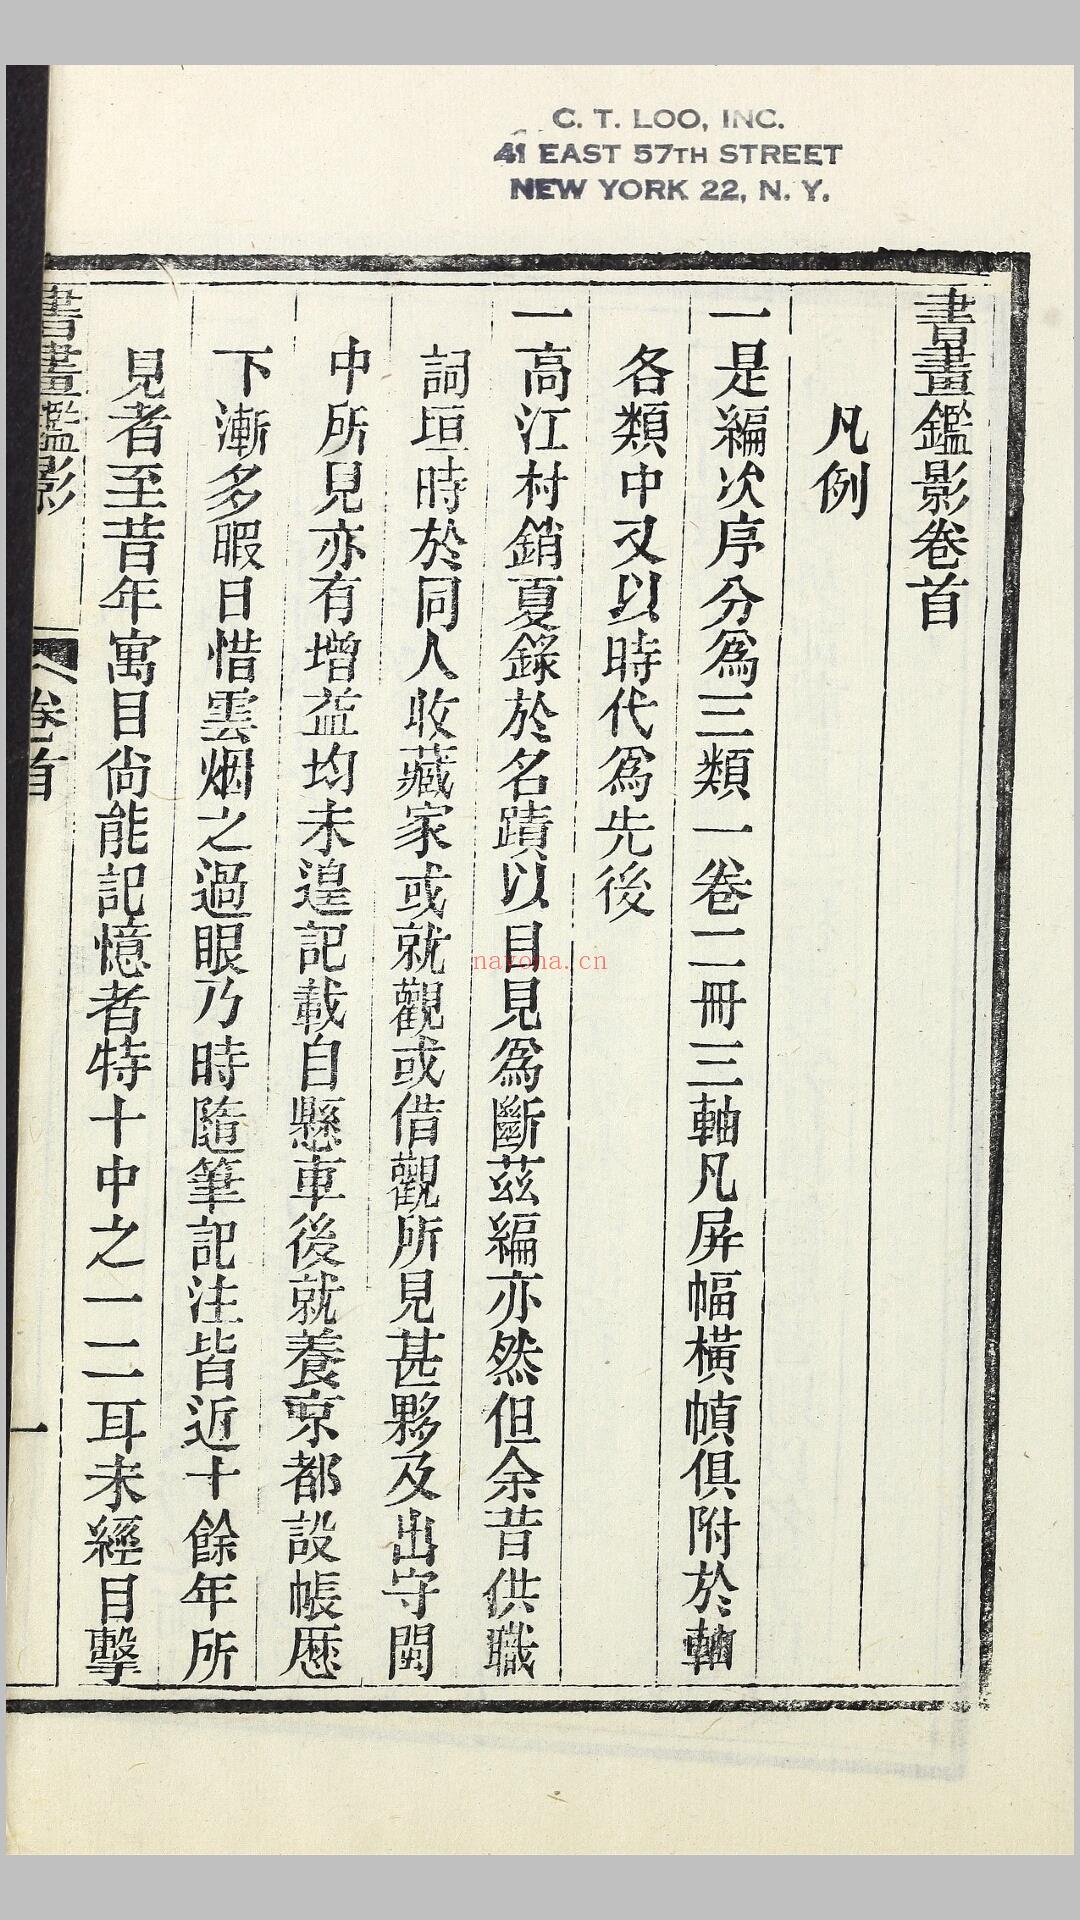 C. T. LOO, INC.
41 EAST 57TH STREET
NEW YORK 22, N. Y.
書畫鑑影卷首
凡例
一是編次序分爲三類一卷二冊三軸凡屏幅橫幀俱附於軸
各類中又以時代爲先後
一高江村銷夏錄於名蹟以目見爲斷茲編亦然但余昔供職
詞垣時於同人收藏家或就觀或借觀所見甚夥及出守閩
中所見亦有增益均未遑記載自懸車後就養京都設帳歷
下漸多暇日惜雲烟之過眼乃時隨筆記注皆近十餘年所
見者至昔年寓目尙能記憶者特十中之一二耳未經目擊
書畫鑑影
卷首
一
nayona.cn